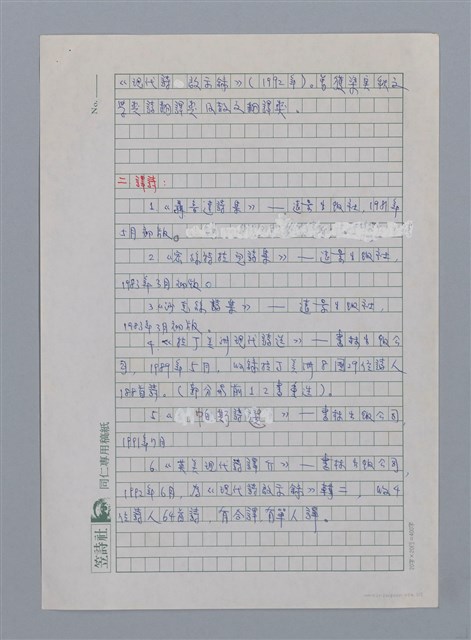 No.
《現代詩啟示錄》(1992年)。曾獲梁實秋文
學獎詩翻譯獎及散文翻譯獎。
二 譯詩：
1《聶魯達詩集》——遠景出版社，1981年
二月初版。
2《密絲特拉兒詩集》——遠景出版社，
1983年3月初版。
3《沙克絲詩集》——遠景出版社，
1983年3月初版。
4《拉丁美洲現代詩選》——書林出版公
司，1989年5月，收錄拉丁美洲8國29位詩人
188首詩。(部分與前12書重迭)。
5《帕斯詩選》——書林出版公司，
1991年7月
6《英美現代詩譯介》——書林出版公司，
1992年6月，為《現代詩啟示錄》輯二，收4
位詩人64首詩，有合譯，有單人譯。
笠詩社 同仁專用稿紙